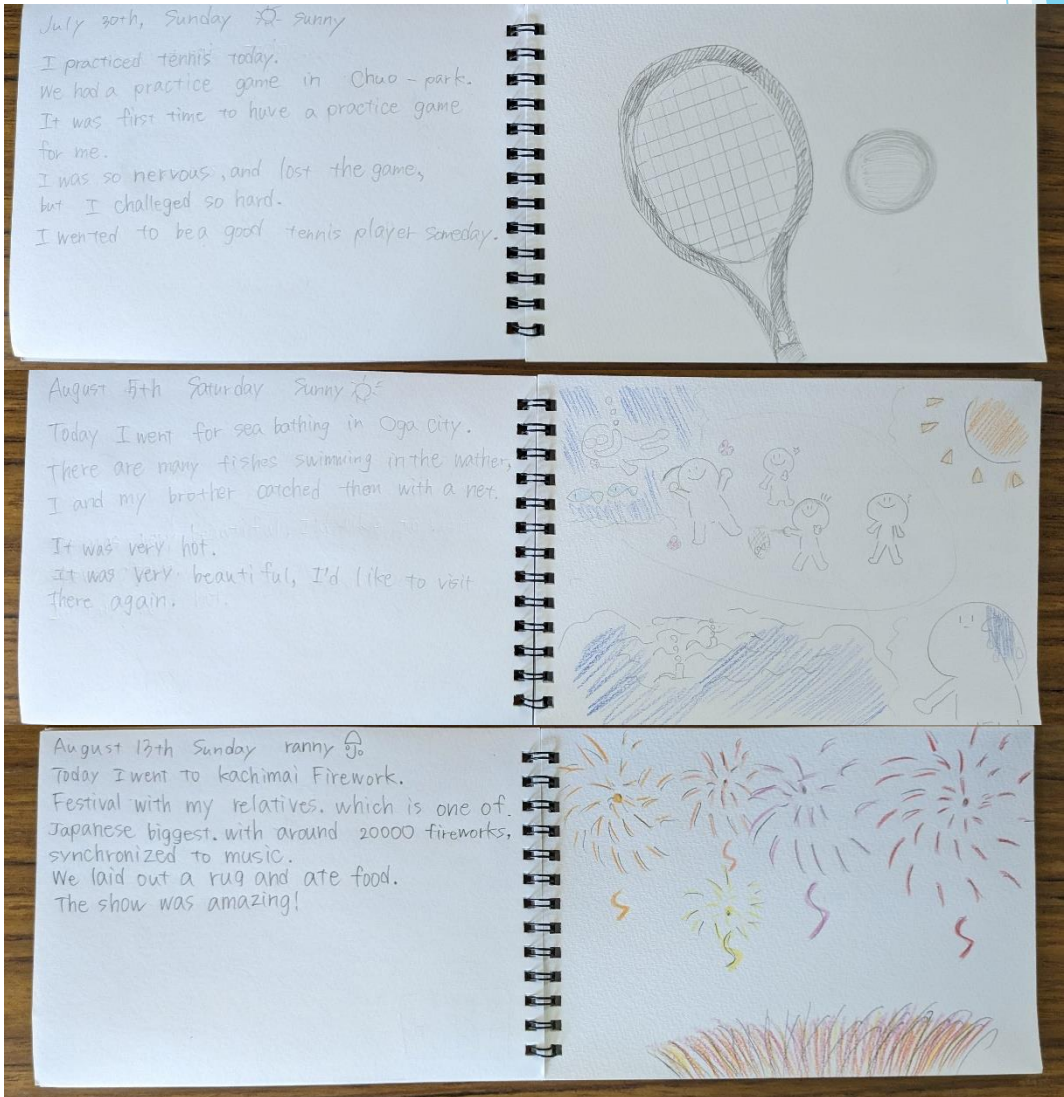 July 30th, Sunday sunny
I practiced tennis today.
We had a practice game in Chuo-park.
It was first time to huve a practice game
for me.
I was so nervous, and lost the game,
but I challeged so hard.
I wented to be a good tennis player someday.
August 5th Saturday Sunny
Today I went for sea bathing in Oga city.
There are many fishes swimming in the wather,
I and my brother catched them with a net.
It was very hot.
It was very beautiful, I'd like to visit
there again.
August 13th Sunday ranny
Today I went to kachimai Firework.
Festival with my relatives. which is one of
Japanese biggest. with around 20000 fireworks,
synchronized to music.
We laid out a rug and ate food.
The show was amazing!